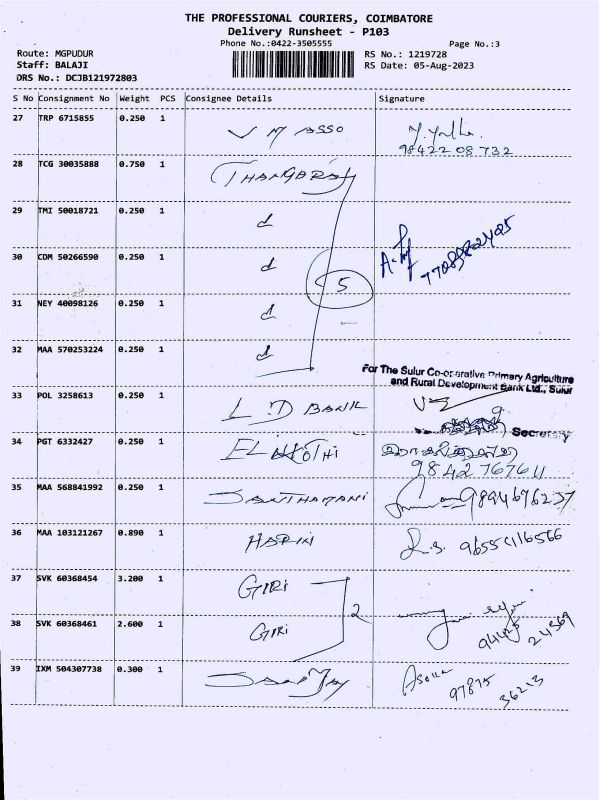 THE PROFESSIONAL COURIERS, COIMBATORE
Delivery Runsheet - P103
Phone No.:0422-3505555 Page No.:3
Route: MGPUDUR RS No.: 1219728
Staff: BALAJI RS Date: 05-Aug-2023
DRS No.: DCJB121972803
S No Consignment No Weight PCS Consignee Details Signature
27 TRP 6715855 0.250 1 V M ASSO
98422 08 732
28 TCG 30035888 0.750 1 THANGARAJ
29 TMI 50018721 0.250 1 d
30 CDM 50266590 0.250 1 d
5
31 NEY 40098126 0.250 1 d
32 MAA 570253224 0.250 1 d
For The Sulur Co-operative Primary Agriculture
and Rural Development Bank Ltd., Sulur
33 POL 3258613 0.250 1 L D BANK
Secretary
34 PGT 6332427 0.250 1
9842767611
35 MAA 568841992 0.250 1 SANTHAMANI 9894696237
36 MAA 103121267 0.890 1 HARINI R.S.
37 SVK 60368454 3.200 1 GIRI
2
38 SVK 60368461 2.600 1 GIRI
94425 24569
39 IXM 504307738 0.300 1 SANJAY
97875 36213